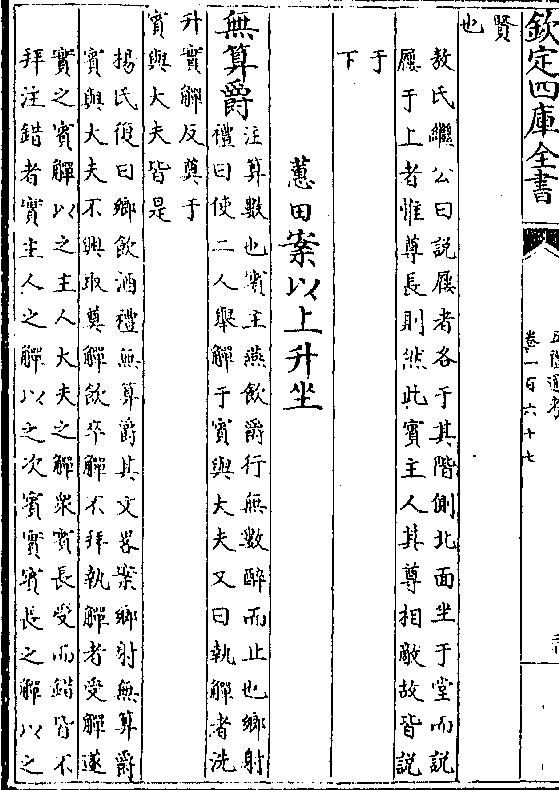 欽定四庫全書
五禮通考
卷一百六十七
賢
也
敖氏繼公曰説屨者各于其階側北面坐于堂而説
屨于上者惟尊長則然此賓主人其尊相敵故皆説
于
下
蕙田案以上升坐
無算爵注算數也賓主燕飲爵行無數醉而止也鄉射
禮曰使二人舉觶于賓與大夫又曰執觶者洗
升實觶反奠于
賓與大夫皆是
楊氏復曰鄉飲酒禮無算爵其文畧案鄉射無算爵
賓與大夫不興取奠觶飲卒觶不拜執觶者受觶遂
實之賓觶以之主人大夫之觶衆賓長受而錯皆不
拜注錯者實主人之觶以之次賓實賓長之觶以之